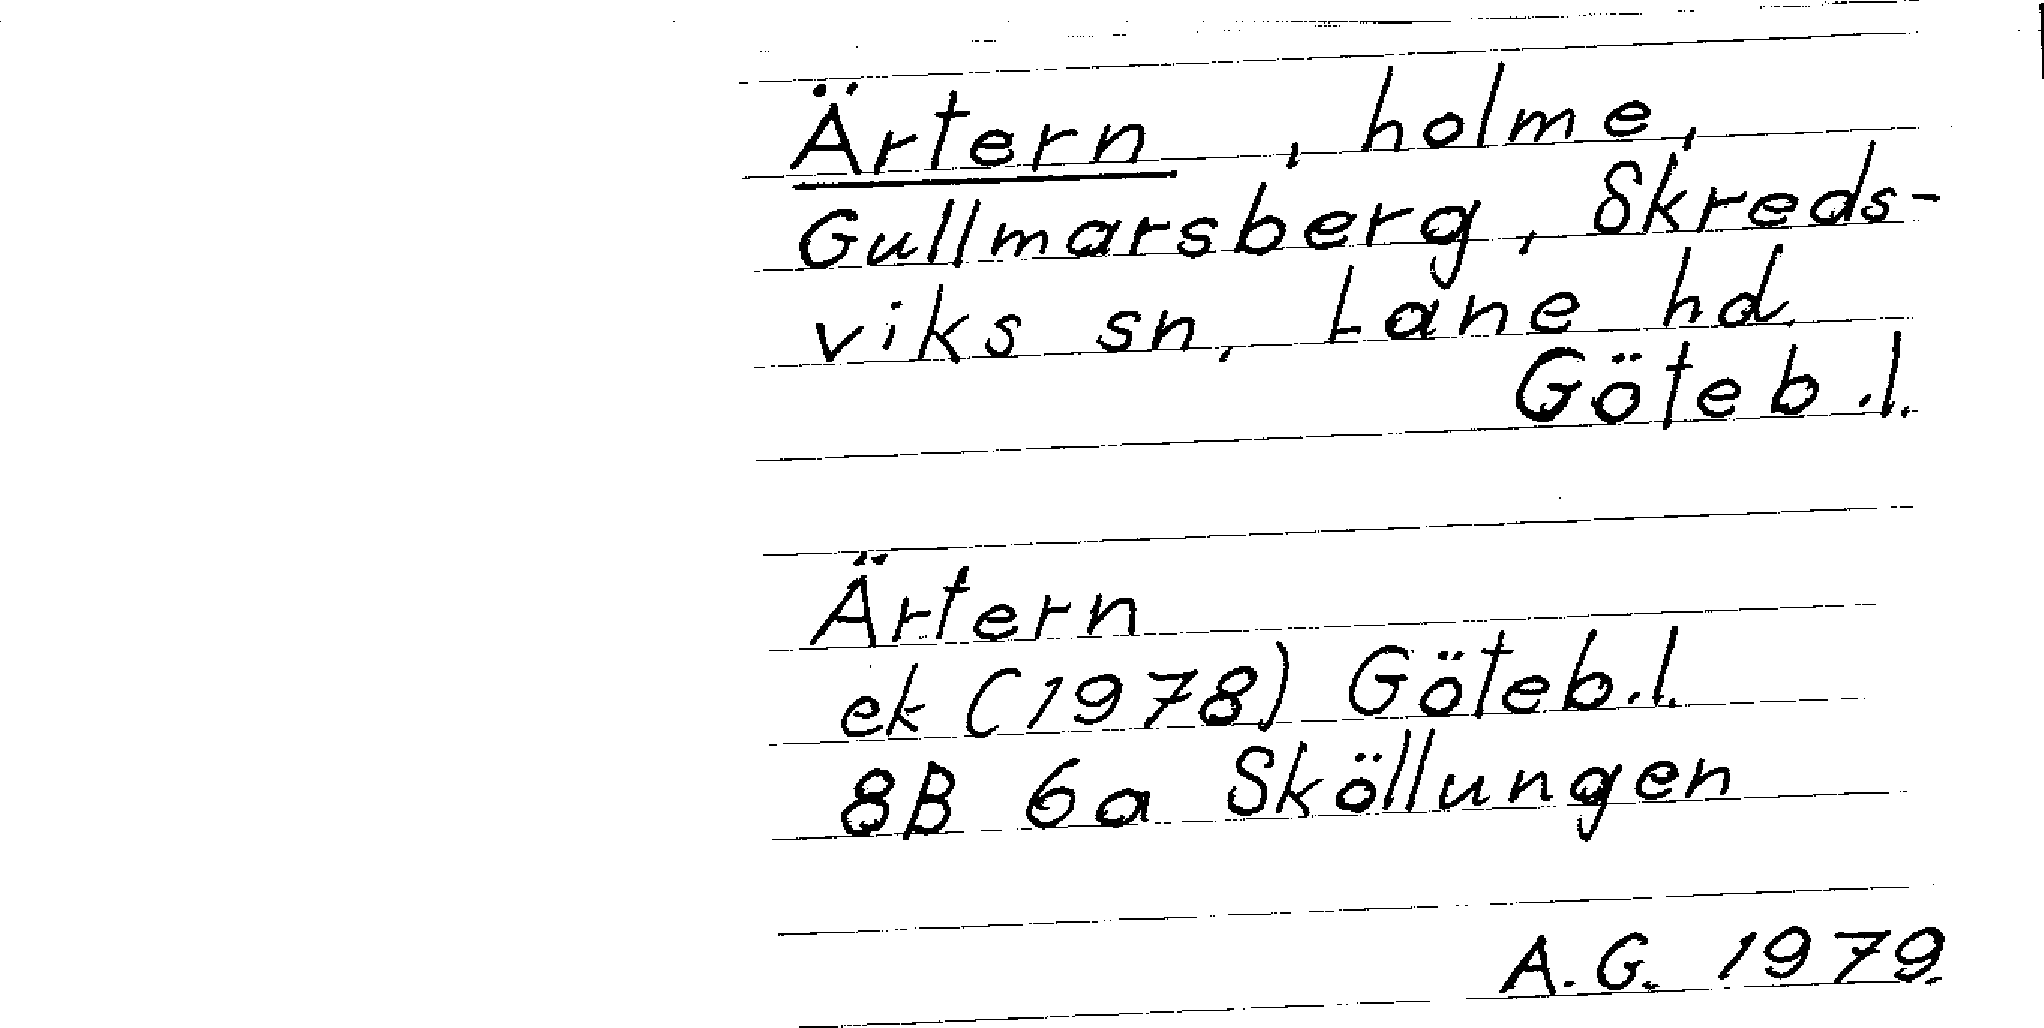 Ärtern , holme,
Gullmarsberg, Skreds-
viks sn, Lane hd,
Göteb.l.
Ärtern
ek (1978) Göteb.l.
8B 6a Sköllungen
A.G. 1979